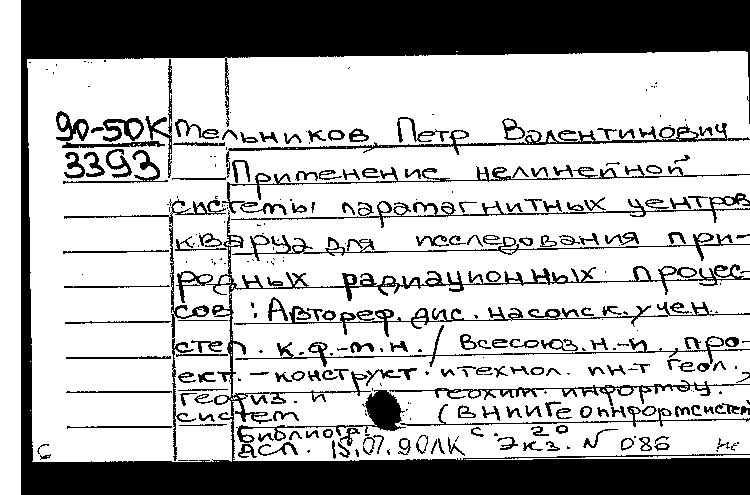 90-50К Мельников, Петр Валентинович
3393 Применение нелинейной
системы парамагнитных центров
кварца для исследования при-
родных радиационных процес-
сов : Автореф. дис. на соиск. учен.
степ. к.ф.-м.н. / Всесоюз. н.-и., про-
ект.-конструкт. и технол. ин-т геол.,
геофиз. и геохим. информац.
систем (ВНИИГеоинформсистем
Библиогр.: с. 20
ДСП. 15.07.90ЛК Экз. N 086 не
С